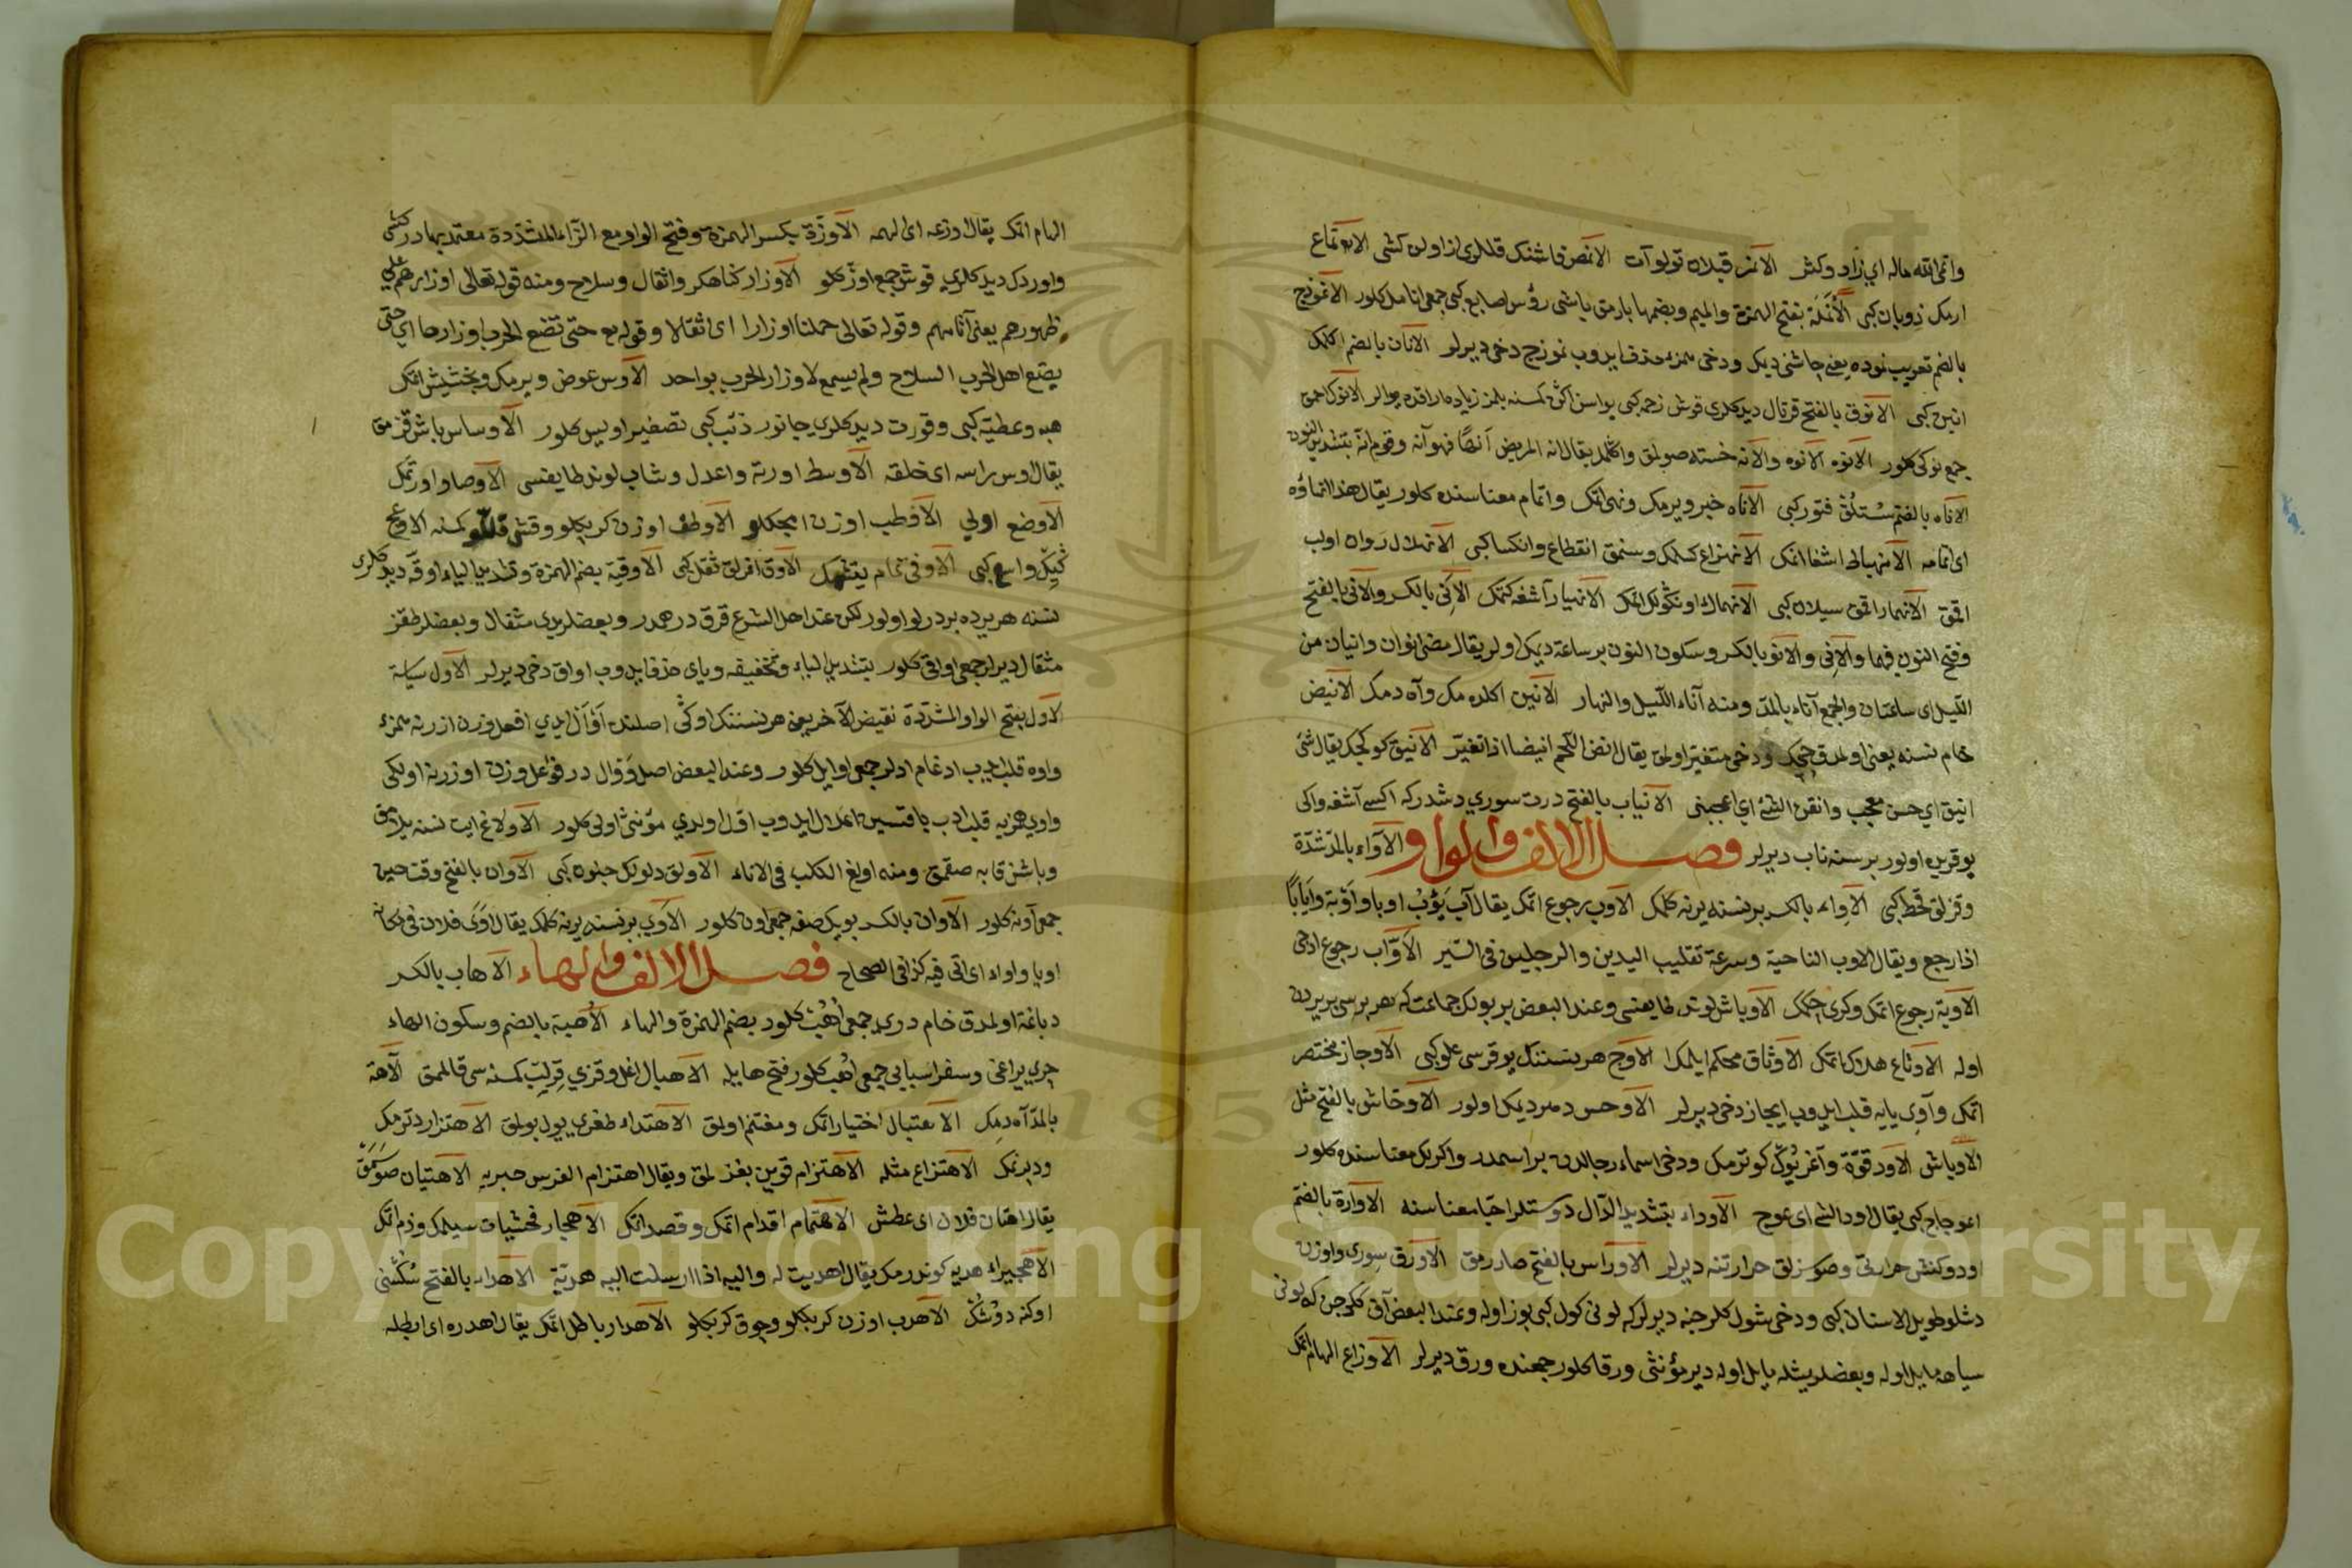 وانمی الله ماله ای زاد وکثر الانمر قبلان قولو آت الانمص قاشنک قللری از اولن کشی الانماع
ارمک ذوبان کبی الأنملة بفتح الهمزة والمیم وبضمها بارمق باشی رؤس اصابع کبی جمعی انامل کلور الانموذج
بالضم تعریب نموده یعنی چاشنی دیمک ودخی همزه حذف ایدوب نموزج دخی دیرلر الانان بالضم اکلمک
انین کبی الانوق بالفتح قرتال دیدکلری قوش رخمه کبی یواسن اکثر کمسنه بلمز زیاده اراقده یوالر الانوک احمق
جمع نوکی کلور الانوه الانوه والانه خسته صولمق واکلمک یقال انه المریض آنها فهو آنه وقوم انه بتشدید النون
الاناه بالفتح سستلق فتور کبی الانهاء خبر ویرمک ونهی اتمک واتمام معناسنده کلور یقال هذا انهاؤه
ای اتمامه الانهباط اشغا اتمک الانهزاع کسلمک وسنمق انقطاع وانکسار کبی الانهلال روان اولب
اقمق الانهمار اقمق سیلان کبی الانهماک اونکولک اتمک الانهیار آشغه کتمک الانی بالکسر والانی بالفتح
وفتح النون فیهما والانی والانو بالکسر وسکون النون بر ساعة دیمک اولر یقال مضی انوان وانیان من
اللیل ای ساعتان والجمع آناء بالمد ومنه آناء اللیل والنهار الانین اکلده مک وآه دمک الانیض
خام نسنه یعنی اولمدق چیک ودخی متغیر اولمق یقال انض اللحم انیضا اذا تغیر الانیق کوکچک یقال شئ
انیق ای حسن معجب وانقنی الشئ ای اعجبنی الانیاب بالفتح درت سوری دشدرکه اکیسی آشغه واکی
یوقریده اولور برسنه ناب دیرلر فصل الالف والواو الآواء بالمد شدة
وقزلق قحط کبی الاواء بالکسر بر نسنه یرنه کلمک الاوب رجوع اتمک یقال آب یؤب اوبا واوبة وایابا
اذا رجع ویقال الاوب الناحیة وسرعة تقلیب الیدین والرجلین فی السیر الاواب رجوع ادجی
الاوبة رجوع اتمک وکری چکمک الاوباش لوند طایفسی وعند البعض بر بولک جماعت که هر برسی بر یردن
اوله الاوتاغ هلاک اتمک الاوثاق محکم ایلمک الاوج هر نسننک یوقرسی علو کبی الاوجاز مختصر
اتمک وآوی یایه قلب ایدوب ایجاز دخی دیرلر الاوحس دمردیمک اولور الاوخاش بالفتح مثل
الاوباش الاود قوة وآغر یوک کوترمک ودخی اسماء رجالدن بر اسمدر واکریک معناسنده کلور
اعوجاج کبی یقال اود الشئ ای عوج الاوداء بتشدید الدال دوستلر احبا معناسنه الاوارة بالضم
اودوکنش حرارتی وصوسزلق حرارتنه دیرلر الاوراس بالفتح صارمق الاورق سوری واوزن
دشلو طویل الاسنان کبی ودخی شول کلرجنه دیرلر که لونی کول کبی بوز اوله وعند البعض آق ککرجن که لونی
سیاهه مایل اوله وبعضلر یشله مایل اوله دیر مؤنثی ورقا کلور جمعنده ورق دیرلر الاوزاع الهام اتمک
الهام اتمک یقال اوزعه ای الهمه الاوزة بکسر الهمزة وفتح الواو مع الزاء المشددة معتمد بهادر کشی
واوردک دیدکلری قوش جمع اوز کلور الاوزار کناهکر واثقال وسلاح ومنه قوله تعالی اوزارهم علی
ظهورهم یعنی آثامهم وقوله تعالی حملنا اوزارا ای اثقالا وقوله تع حتی تضع الحرب اوزارها ای حتی
یضع اهل الحرب السلاح ولم یسمع لاوزار الحرب بواحد الاوس عوض ویرمک وبخشیش اتمک
هبه وعطیه کبی وقورت دیدکلری جانور ذئب کبی تصغیر اویس کلور الاوساس باش قزمق
یقال اوس راسه ای حلقه الاوسط اورته واعدل وشاب لوند طایفسی الاوصاو اورتمک
الاوضع اولی الاوطب اوزن امجکلو الاوطف اوزن کربکلو وقشی قللو کمسنه الاوعی
کیک واسع کبی الاوفی تمام یتشمک الاوق اغرلق ثقل کبی الاوقیة بضم الهمزة وتشدید الیاء اوقه دیدکلری
نسنه هر یرده بر درلو اولور لکن عند اهل الشرع قرق درهمدر وبعضلر یدی مثقال وبعضلر طقز
مثقال دیرلر جمعی اواقی کلور بتشدید الیاء وتخفیفه ویای حذف ایدوب اواق دخی دیرلر الاول سیاسة
الاول بفتح الواو المشددة نقیض الآخر یعنی هر نسننک اوکی اصلنده أوأل ایدی افعل وزن ازرنه همزه
واوه قلب ایدب ادغام ادلر جمعی اوایل کلور وعند البعض اصل ووال در فوعل وزن اوزرنه اولکی
واوی همزیه قلب ادب باقتسین اعلال ایدوب اول اولدی مؤنثی اولی کلور الاولاغ ایت نسنه یلامق
وباشن قابه صقمق ومنه اولغ الکلب فی الاناء الاولق دولکل جنون کبی الاوان بالفتح وقت حین
جمعی آونه کلور الاوان بالکسر بویک صفه جمعی اون کلور الاوی بر نسنه یرنه کلمک یقال اوی فلان فی مکانه
اویا واواء ای اتی فیه کذا فی الصحاح فصل الالف والهاء الاهاب بالکسر
دباغة اولمدق خام دری جمعی أهب کلور بضم الهمزة والهاء الأهبة بالضم وسکون الهاء
چری یراغی وسفر اسبابی جمعی أهب کلور فتح هایله الاهبال اغل وقزی قرلیب کمسنه سی قالممق الآهة
بالمد آه دمک الاهتبال اختیار اتمک ومغتنم اولمق الاهتداء طغری یول بولمق الاهتزاز دترمک
ودبرنمک الاهتزاع مثله الاهتزام قوین بغزلمق ویقال اهتزام الفرس جریه الاهتیان صوسمق
یقال اهتان فلان ای عطش الاهتمام اقدام اتمک وقصد اتمک الاهجار فحشیات سیلمک وزم اتمک
الاهجیراء هدیه کوندرمک یقال اهدیت له والیه اذا ارسلت الیه هدیة الاهداء بالفتح
اوکنه دوشک الاهدب اوزن کربکلو وچوق کربکلو الاهدار باطل اتمک یقال اهدره ای ابطله